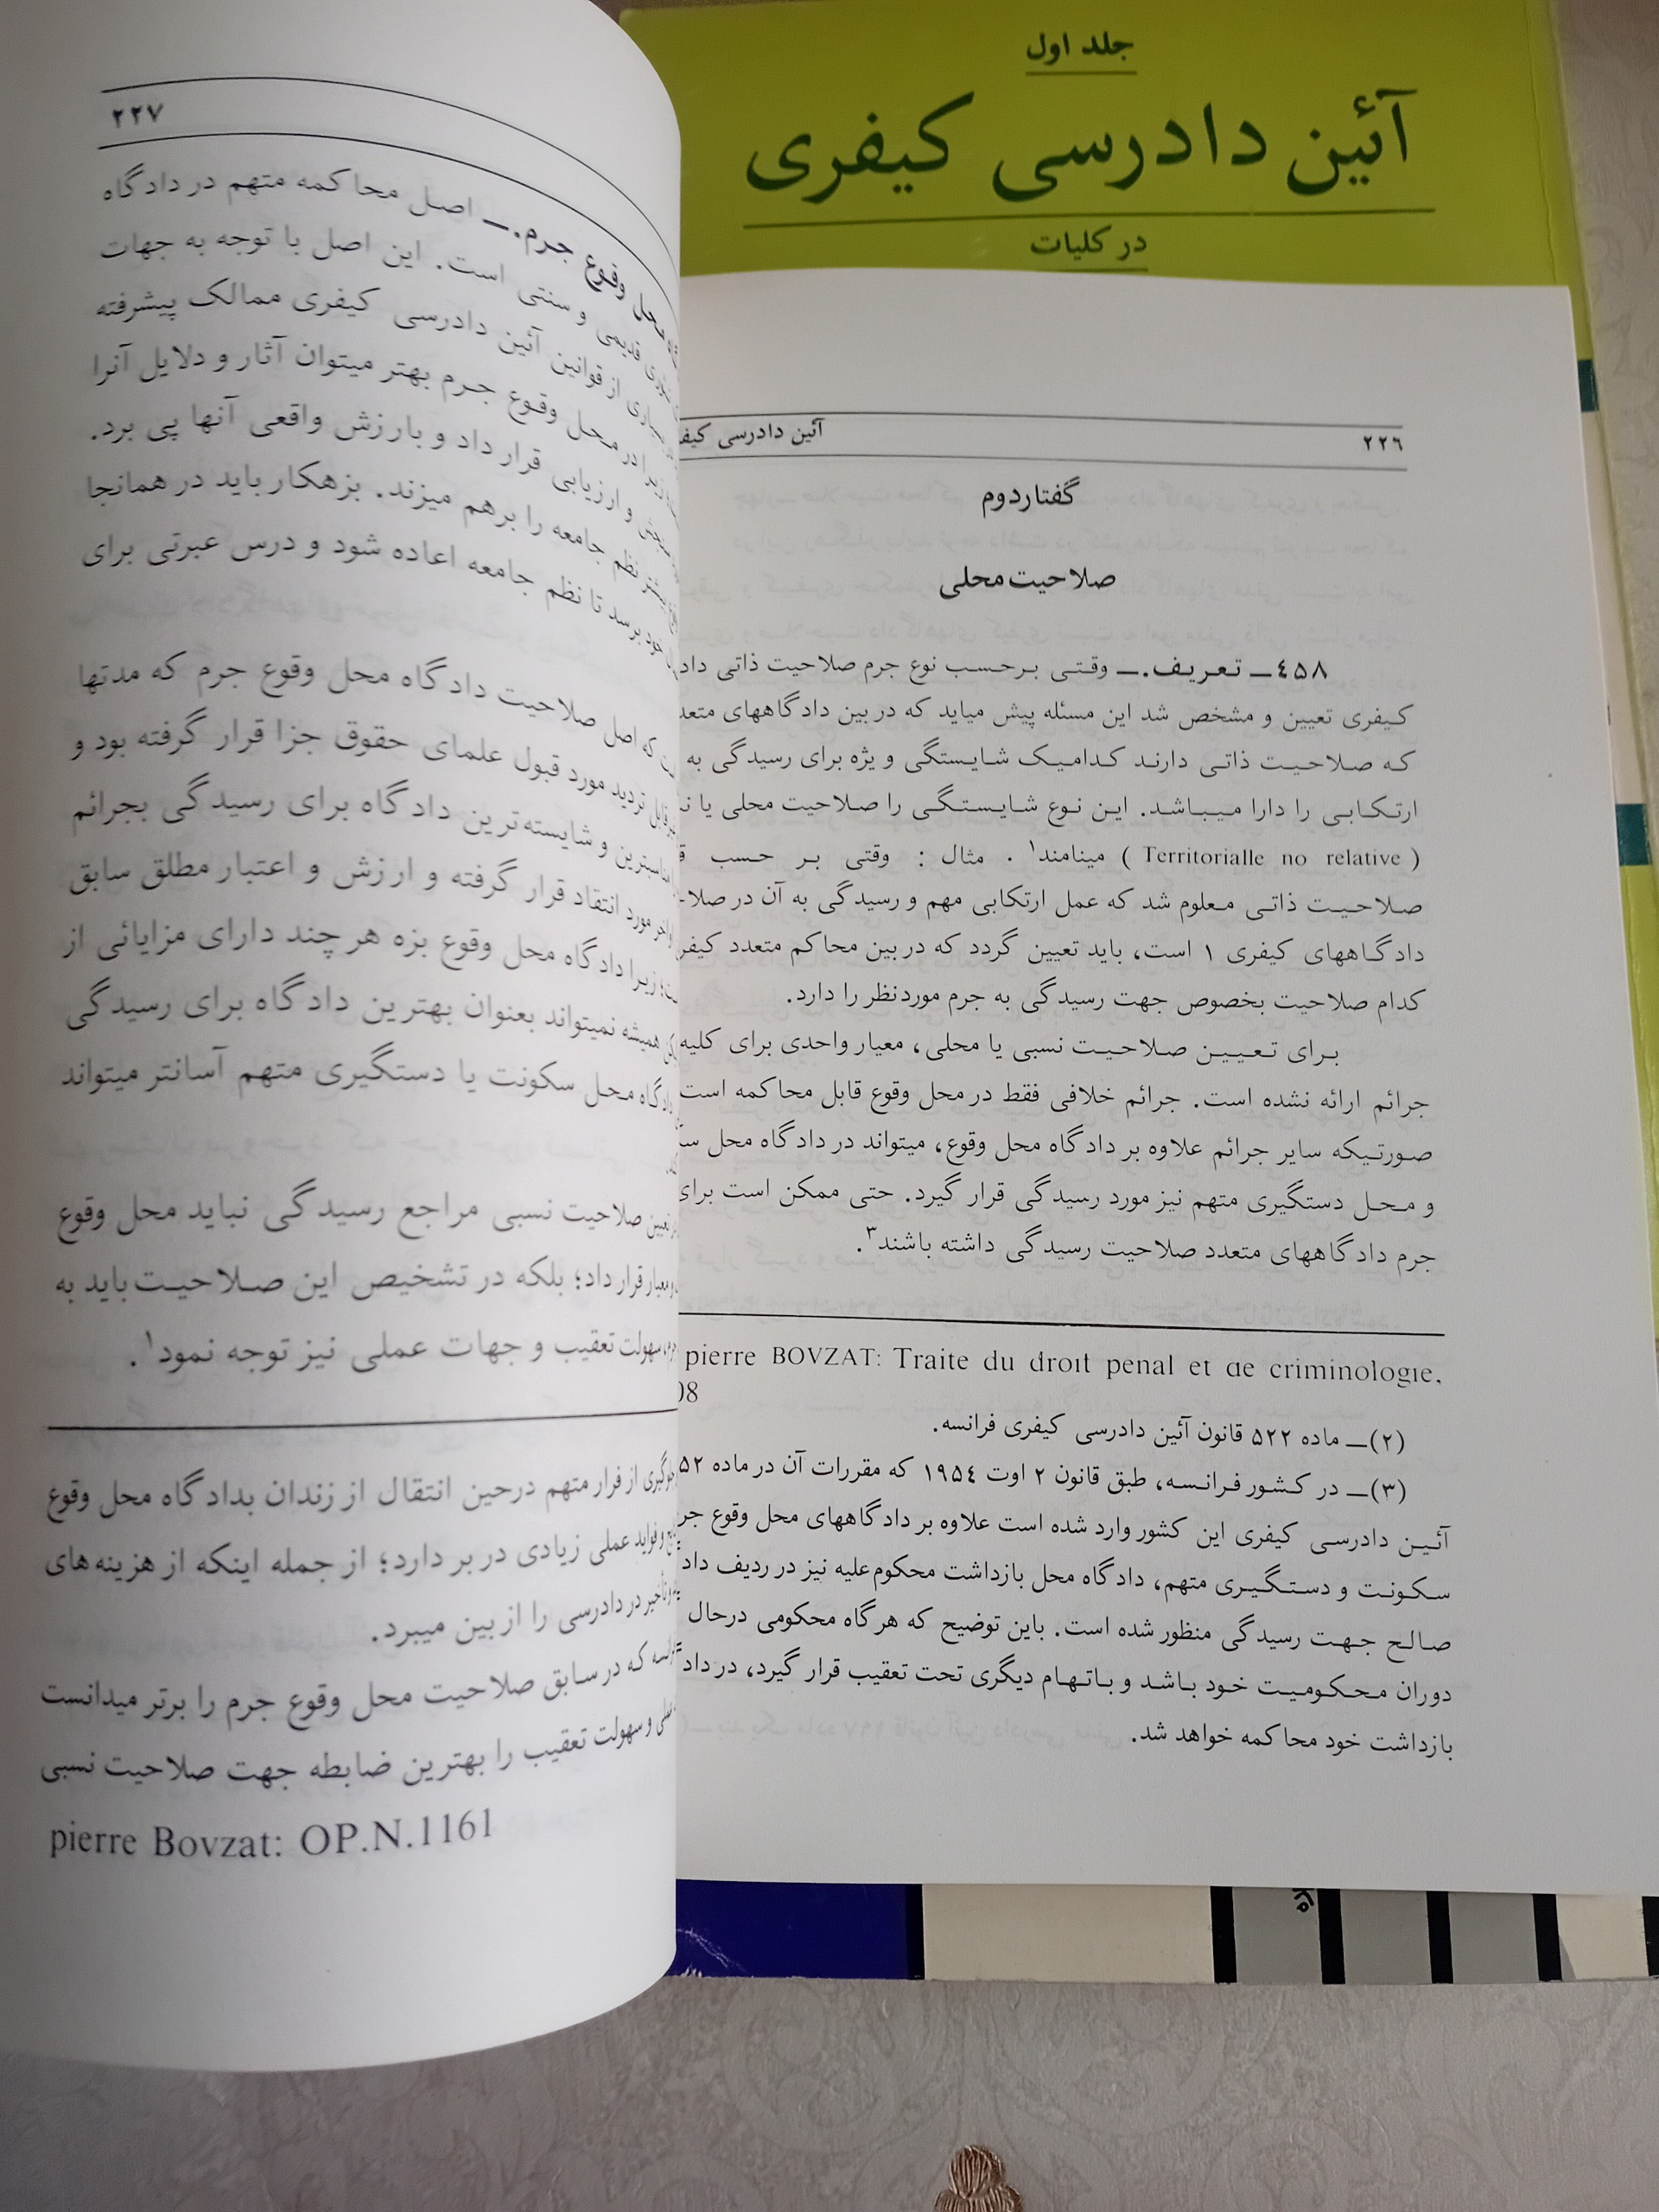 جلد اول
آئین دادرسی کیفری
در کلیات
۲۲۶
آئین دادرسی
گفتاردوم
صلاحیت محلی
۴۵۸ــ تعریف.ــ وقتی برحسب نوع جرم صلاحیت ذاتی
کیفری تعیین و مشخص شد این مسئله پیش میاید که در بین دادگاههای
که صلاحیت ذاتی دارند کدامیک شایستگی و ویژه برای رسیدگی به
ارتکابی را دارا میباشد. این نوع شایستگی را صلاحیت محلی یا
( Territorialle no relative ) مینامند۱ . مثال : وقتی بر حسب
صلاحیت ذاتی معلوم شد که عمل ارتکابی مهم و رسیدگی به آن در
دادگاههای کیفری ۱ است، باید تعیین گردد که در بین محاکم متعدد
کدام صلاحیت بخصوص جهت رسیدگی به جرم موردنظر را دارد.
برای تعیین صلاحیت نسبی یا محلی، معیار واحدی برای کلیه
جرائم ارائه نشده است. جرائم خلافی فقط در محل وقوع قابل محاکمه است
صورتیکه سایر جرائم علاوه بر دادگاه محل وقوع، میتواند در دادگاه محل
و محل دستگیری متهم نیز مورد رسیدگی قرار گیرد. حتی ممکن است برای
جرم دادگاههای متعدد صلاحیت رسیدگی داشته باشند۳.
pierre BOVZAT: Traite du droit penal et de criminologie.
08
(۲)ــ ماده ۵۲۲ قانون آئین دادرسی کیفری فرانسه.
(۳)ــ در کشور فرانسه، طبق قانون ۲ اوت ۱۹۵۴ که مقررات آن در ماده
آئین دادرسی کیفری این کشور وارد شده است علاوه بر دادگاههای محل وقوع
سکونت و دستگیری متهم، دادگاه محل بازداشت محکوم‌علیه نیز در ردیف
صالح جهت رسیدگی منظور شده است. باین توضیح که هرگاه محکومی درحال
دوران محکومیت خود باشد و باتهام دیگری تحت تعقیب قرار گیرد، در
بازداشت خود محاکمه خواهد شد.
۲۲۷
محل وقوع جرم.ــ اصل محاکمه متهم در دادگاه
قدیمی و سنتی است. این اصل با توجه به جهات
از قوانین آئین دادرسی کیفری ممالک پیشرفته
در محل وقوع جرم بهتر میتوان آثار و دلایل آنرا
و ارزیابی قرار داد و بارزش واقعی آنها پی برد.
نظم جامعه را برهم میزند. بزهکار باید در همانجا
خود برسد تا نظم جامعه اعاده شود و درس عبرتی برای
که اصل صلاحیت دادگاه محل وقوع جرم که مدتها
تردید مورد قبول علمای حقوق جزا قرار گرفته بود و
مناسبترین و شایسته‌ترین دادگاه برای رسیدگی بجرائم
مورد انتقاد قرار گرفته و ارزش و اعتبار مطلق سابق
زیرا دادگاه محل وقوع بزه هر چند دارای مزایائی از
همیشه نمیتواند بعنوان بهترین دادگاه برای رسیدگی
دادگاه محل سکونت یا دستگیری متهم آسانتر میتواند
تعیین صلاحیت نسبی مراجع رسیدگی نباید محل وقوع
معیار قرار داد؛ بلکه در تشخیص این صلاحیت باید به
سهولت تعقیب و جهات عملی نیز توجه نمود۱.
از فرار متهم درحین انتقال از زندان بدادگاه محل وقوع
و فواید عملی زیادی در بر دارد؛ از جمله اینکه از هزینه‌های
تأخیر در دادرسی را از بین میبرد.
که در سابق صلاحیت محل وقوع جرم را برتر میدانست
و سهولت تعقیب را بهترین ضابطه جهت صلاحیت نسبی
pierre Bovzat: OP.N.1161